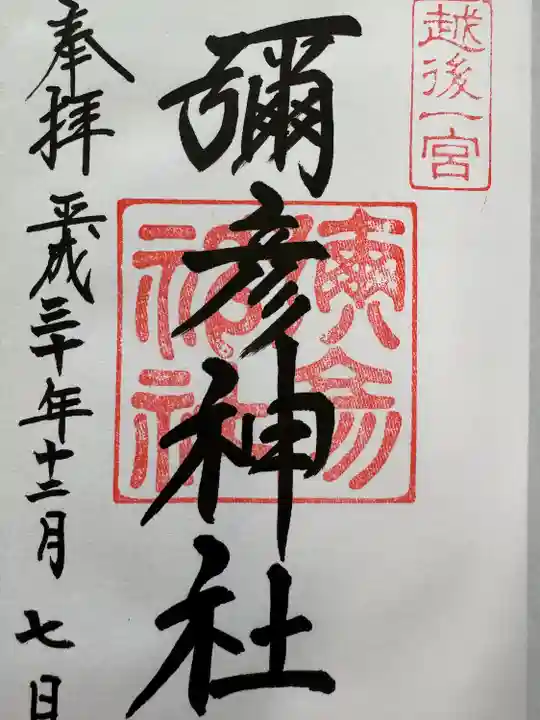 越後一宮
彌彦神社
奉拝
平成三十年十二月七日